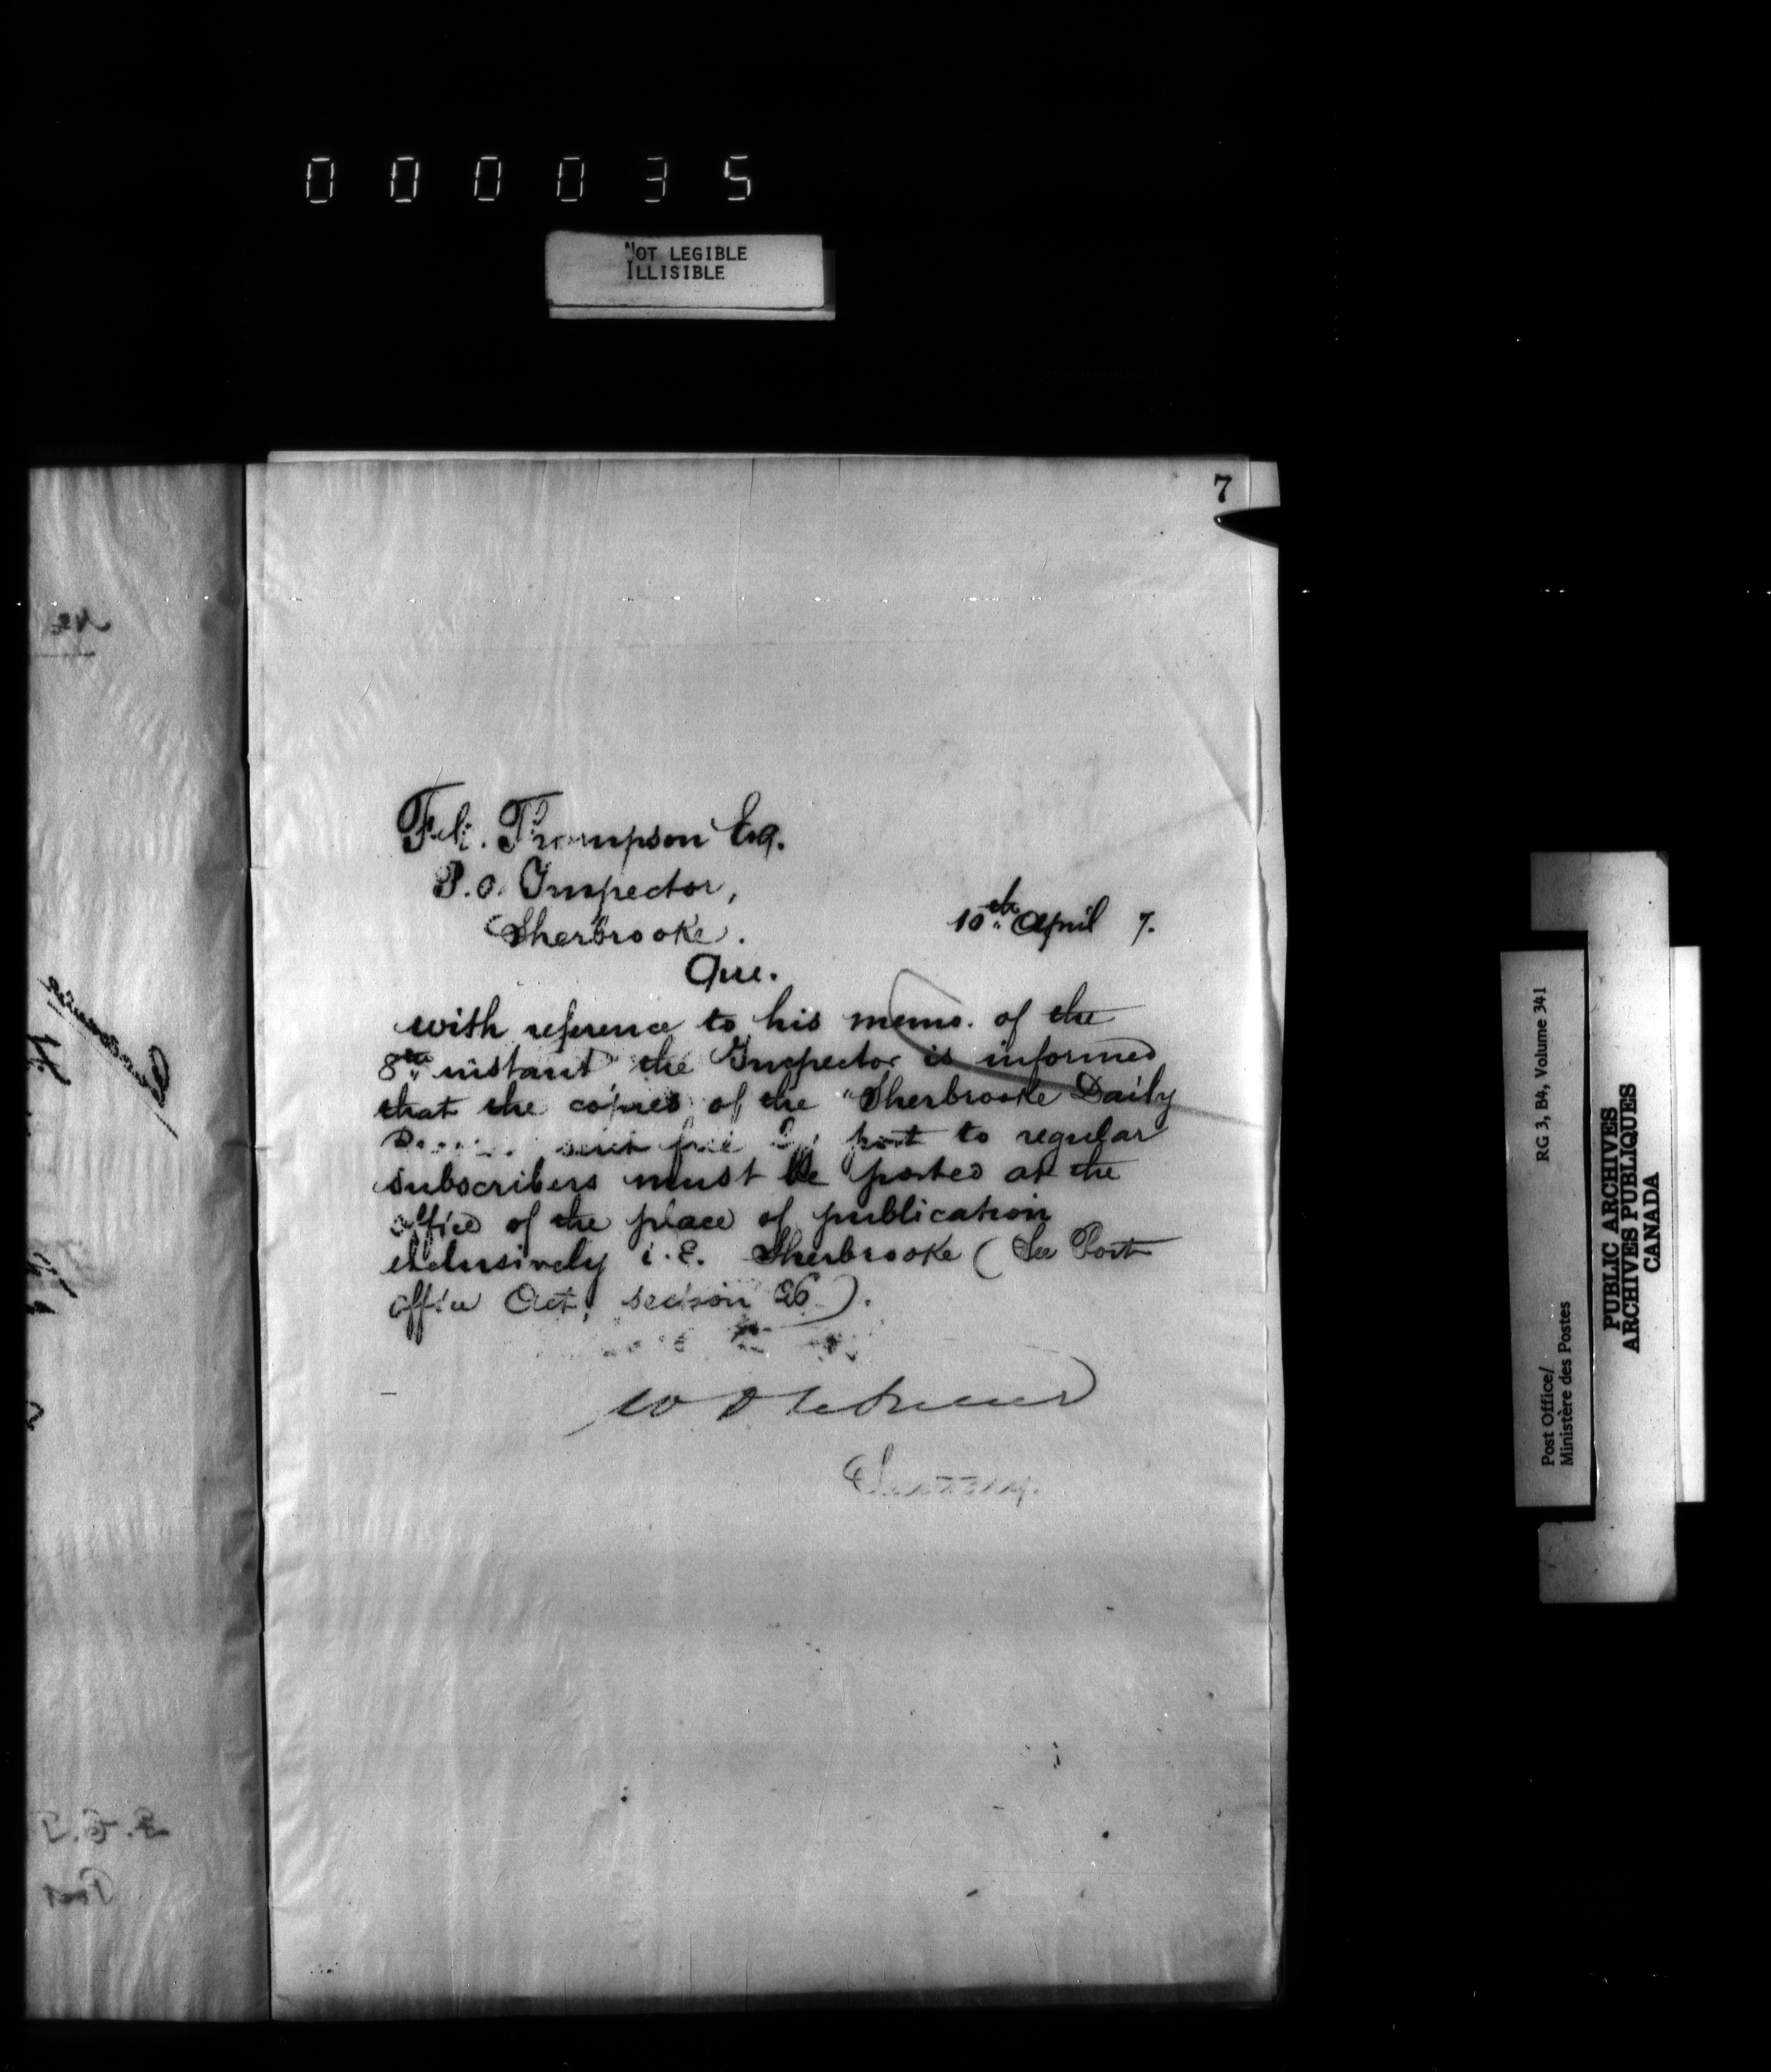 000035
NOT LEGIBLE
ILLISIBLE
7
Thompson Esq.
P.O. Inspector,
Sherbrooke.
10th April 7.
Que.
with reference to his memo. of the
8th instant the Inspector is informed
that the copies of the "Sherbrooke Daily
sent free by post to regular
subscribers must be posted at the
office of the place of publication
exclusively i.e. Sherbrooke (See Post
Office Act, section 26).
Secretary.
RG 3, B4, Volume 341
Post Office/
Ministère des Postes
PUBLIC ARCHIVES
ARCHIVES PUBLIQUES
CANADA